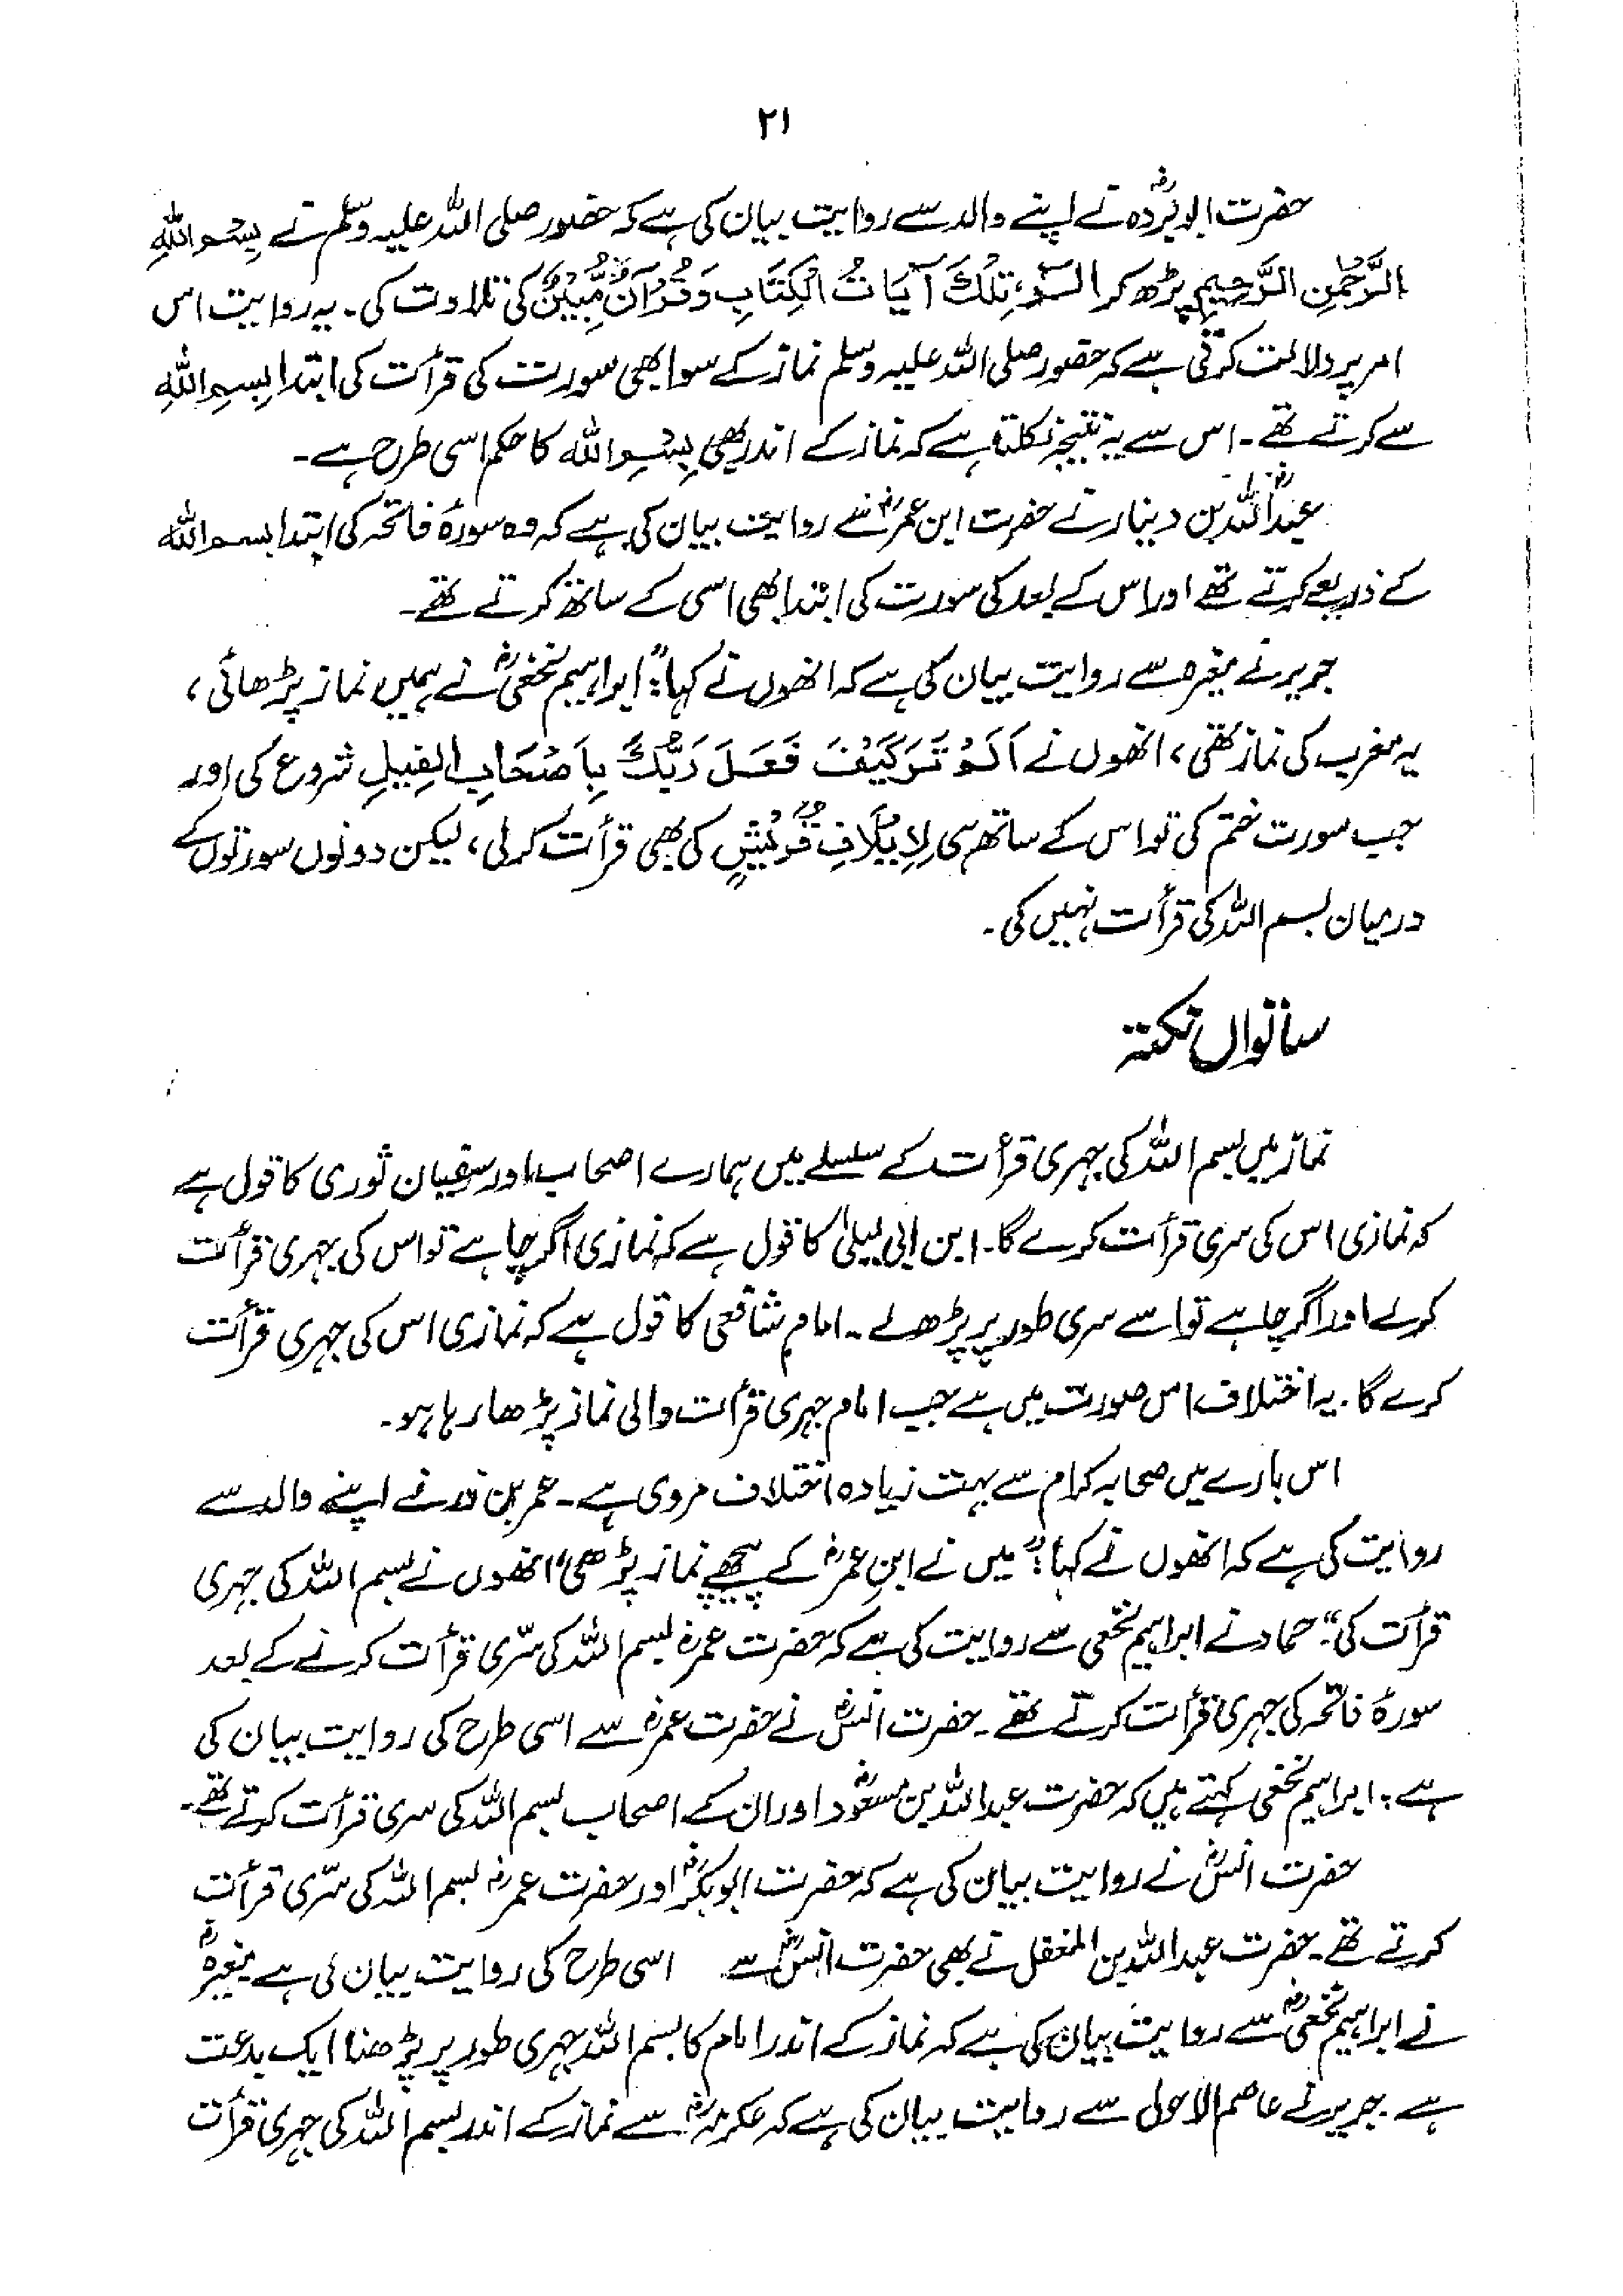 ۲۱
حضرت ابو بردہؓ نے اپنے والد سے روایت بیان کی ہے کہ حضور صلی اللہ علیہ وسلم نے بِسْمِ اللہِ
الرَّحْمٰنِ الرَّحِیْمِ پڑھ کر الٓرٰ، تِلْكَ آيَاتُ الْكِتَابِ وَقُرْآنٍ مُّبِيْنٍ کی تلاوت کی۔ یہ روایت اس
امر پر دلالت کرتی ہے کہ حضور صلی اللہ علیہ وسلم نماز کے سوا بھی سورت کی قرأت کی ابتدا بِسمِ اللہِ
سے کرتے تھے۔ اس سے یہ نتیجہ نکلتا ہے کہ نماز کے اندر بھی بِسْمِ اللہ کا حکم اسی طرح ہے۔
عبداللہؓ بن دینار نے حضرت ابن عمرؓ سے روایت بیان کی ہے کہ وہ سورۂ فاتحہ کی ابتدا بسم اللہ
کے ذریعے کرتے تھے اور اس کے بعد کی سورت کی ابتدا بھی اسی کے ساتھ کرتے تھے۔
جریر نے مغیرہ سے روایت بیان کی ہے کہ انھوں نے کہا: "ابراہیم نخعیؒ نے ہمیں نماز پڑھائی،
یہ مغرب کی نماز تھی، انھوں نے اَلَمْ تَرَ كَيْفَ فَعَلَ رَبُّكَ بِاَصْحَابِ الْفِيْلِ شروع کی اور
جب سورت ختم کی تو اس کے ساتھ ہی لِاِيْلَافِ قُرَيْشٍ کی بھی قرأت کر لی، لیکن دونوں سورتوں کے
درمیان بسم اللہ کی قرأت نہیں کی۔
ساتواں نکتہ
نماز میں بسم اللہ کی جہری قرأت کے سلسلے میں ہمارے اصحاب اور سفیان ثوری کا قول ہے
کہ نمازی اس کی سری قرأت کرے گا۔ ابن ابی لیلیٰ کا قول ہے کہ نمازی اگر چاہے تو اس کی جہری قرأت
کرلے اور اگر چاہے تو اسے سری طور پر پڑھ لے۔ امام شافعی کا قول ہے کہ نمازی اس کی جہری قرأت
کرے گا۔ یہ اختلاف اس صورت میں ہے جب امام جہری قرأت والی نماز پڑھا رہا ہو۔
اس بارے میں صحابہ کرام سے بہت زیادہ اختلاف مروی ہے۔ عمر بن ذر نے اپنے والد سے
روایت کی ہے کہ انھوں نے کہا: "میں نے ابن عمرؓ کے پیچھے نماز پڑھی، انھوں نے بسم اللہ کی جہری
قرأت کی"۔ حماد نے ابراہیم نخعی سے روایت کی ہے کہ حضرت عمرؓ بسم اللہ کی سرّی قرأت کرنے کے بعد
سورۂ فاتحہ کی جہری قرأت کرتے تھے۔ حضرت انسؓ نے حضرت عمرؓ سے اسی طرح کی روایت بیان کی
ہے۔ ابراہیم نخعی کہتے ہیں کہ حضرت عبداللہ بن مسعودؓ اور ان کے اصحاب بسم اللہ کی سری قرأت کرتے تھے۔
حضرت انسؓ نے روایت بیان کی ہے کہ حضرت ابو بکرؓ اور حضرت عمرؓ بسم اللہ کی سرّی قرأت
کرتے تھے۔ حضرت عبداللہ بن المغفل نے بھی حضرت انسؓ سے اسی طرح کی روایت بیان کی ہے مغیرہؒ
نے ابراہیم نخعیؒ سے روایت بیان کی ہے کہ نماز کے اندر امام کا بسم اللہ جہری طور پر پڑھنا ایک بدعت
ہے۔ جریر نے عاصم الاحول سے روایت بیان کی ہے کہ عکرمہؒ سے نماز کے اندر بسم اللہ کی جہری قرأت